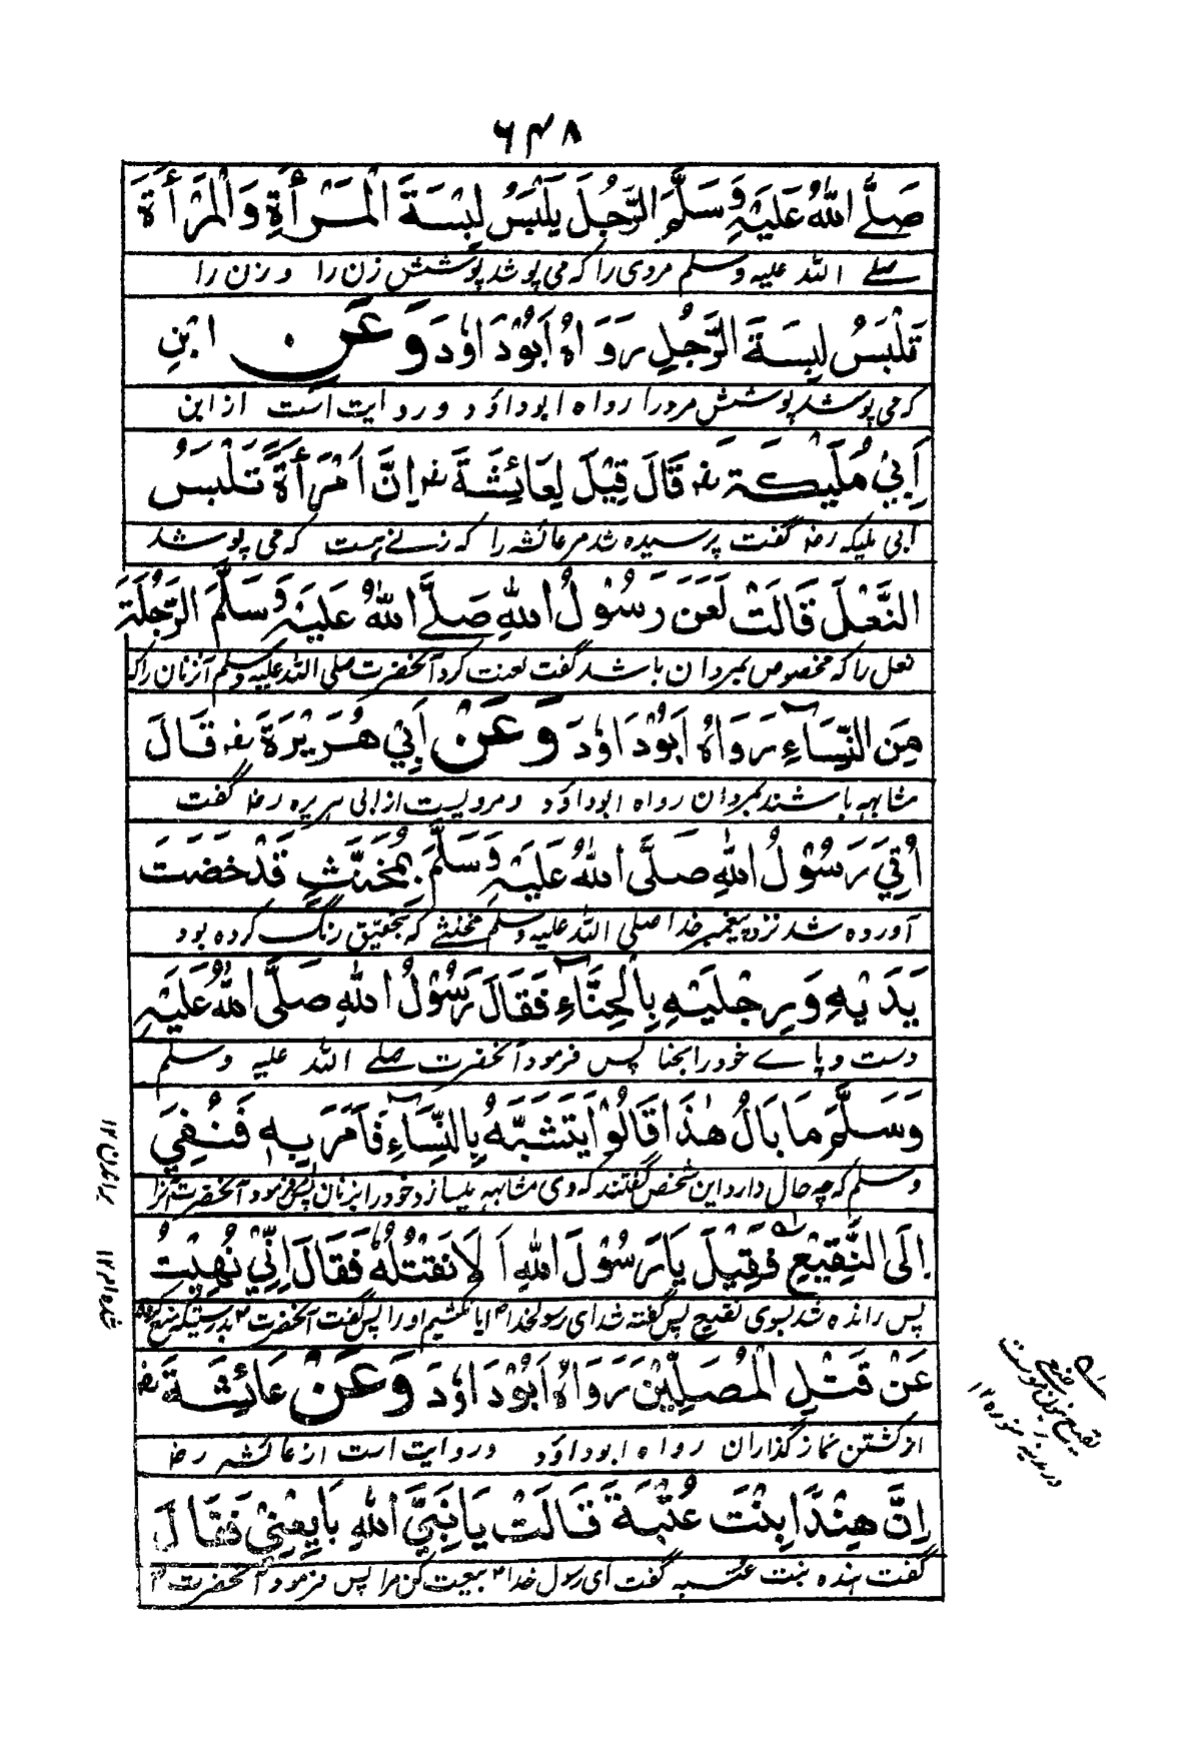 ۶۴۸
صَلَّے اللهُ عَلَيْهِ وَسَلَّمَ الرَّجُلَ يَلْبَسُ لِبْسَةَ الْمَرْأَةِ وَالْمَرْأَةَ
صلے اللہ علیہ وسلم مردی را کہ می پوشد پوشش زن را و زن را
تَلْبَسُ لِبْسَةَ الرَّجُلِ رَوَاهُ اَبُوْدَاوٗدَ وَعَنِ ابْنِ
کہ می پوشد پوشش مرد را رواہ ابوداؤد و روایت است از ابن
اَبِيْ مُلَيْكَةَ رض قَالَ قِيْلَ لِعَائِشَةَ رض اِنَّ امْرَأَةً تَلْبَسُ
ابی ملیکہ رض گفت پرسیدہ شد مر عائشہ را کہ زنے ہست کہ می پوشد
النَّعْلَ قَالَتْ لَعَنَ رَسُوْلُ اللهِ صَلَّے اللهُ عَلَيْهِ وَسَلَّمَ الرَّجُلَةَ
نعل را کہ مخصوص بمردان باشد گفت لعنت کرد آنحضرت صلی اللہ علیہ وسلم آنزنان را کہ
مِنَ النِّسَآءِ رَوَاهُ اَبُوْدَاوٗدَ وَعَنْ اَبِيْ هُرَيْرَةَ رض قَالَ
مشابہ باشند بمردان رواہ ابوداؤد و مرویست از ابی ہریرہ رض گفت
اُتِيَ رَسُوْلُ اللهِ صَلَّى اللهُ عَلَيْهِ وَسَلَّمَ بِمُخَنَّثٍ قَدْ خَضَبَ
آوردہ شد نزد پیغمبر خدا صلی اللہ علیہ وسلم مخنثے کہ بتحقیق رنگ کردہ بود
يَدَيْهِ وَرِجْلَيْهِ بِالْحِنَّآءِ فَقَالَ رَسُوْلُ اللهِ صَلَّى اللهُ عَلَيْهِ
دست و پاے خود را بحنا پس فرمود آنحضرت صلے اللہ علیہ وسلم
وَسَلَّمَ مَا بَالُ هٰذَا قَالُوْا يَتَشَبَّهُ بِالنِّسَآءِ فَاَمَرَ بِهٖ فَنُفِيَ
وسلم کہ چہ حال دارد این شخص گفتند کہ وی مشابہ میسازد خود را بزنان پس فرمود آنحضرت آنرا
اِلَى النَّقِيْعِ فَقِيْلَ يَا رَسُوْلَ اللهِ اَلَا نَقْتُلُهُ فَقَالَ اِنِّيْ نُهِيْتُ
پس راندہ شد بسوی نقیع پس گفتہ شد ای رسولخدا آیا نکشیم او را پس گفت آنحضرت بدرستیکہ منع کردہ
عَنْ قَتْلِ الْمُصَلِّيْنَ رَوَاهُ اَبُوْدَاوٗدَ وَعَنْ عَائِشَةَ رض
از کشتن نماز گذاران رواہ ابوداؤد و روایت است از عائشہ رض
اِنَّ هِنْدًا بِنْتَ عُتْبَةَ قَالَتْ يَا نَبِيَّ اللهِ بَايِعْنِيْ فَقَالَ
گفت ہندہ بنت عتبہ گفت ای رسول خدا بیعت کن مرا پس فرمود آنحضرت
نقیع
در مدینہ منورہ ۱۲